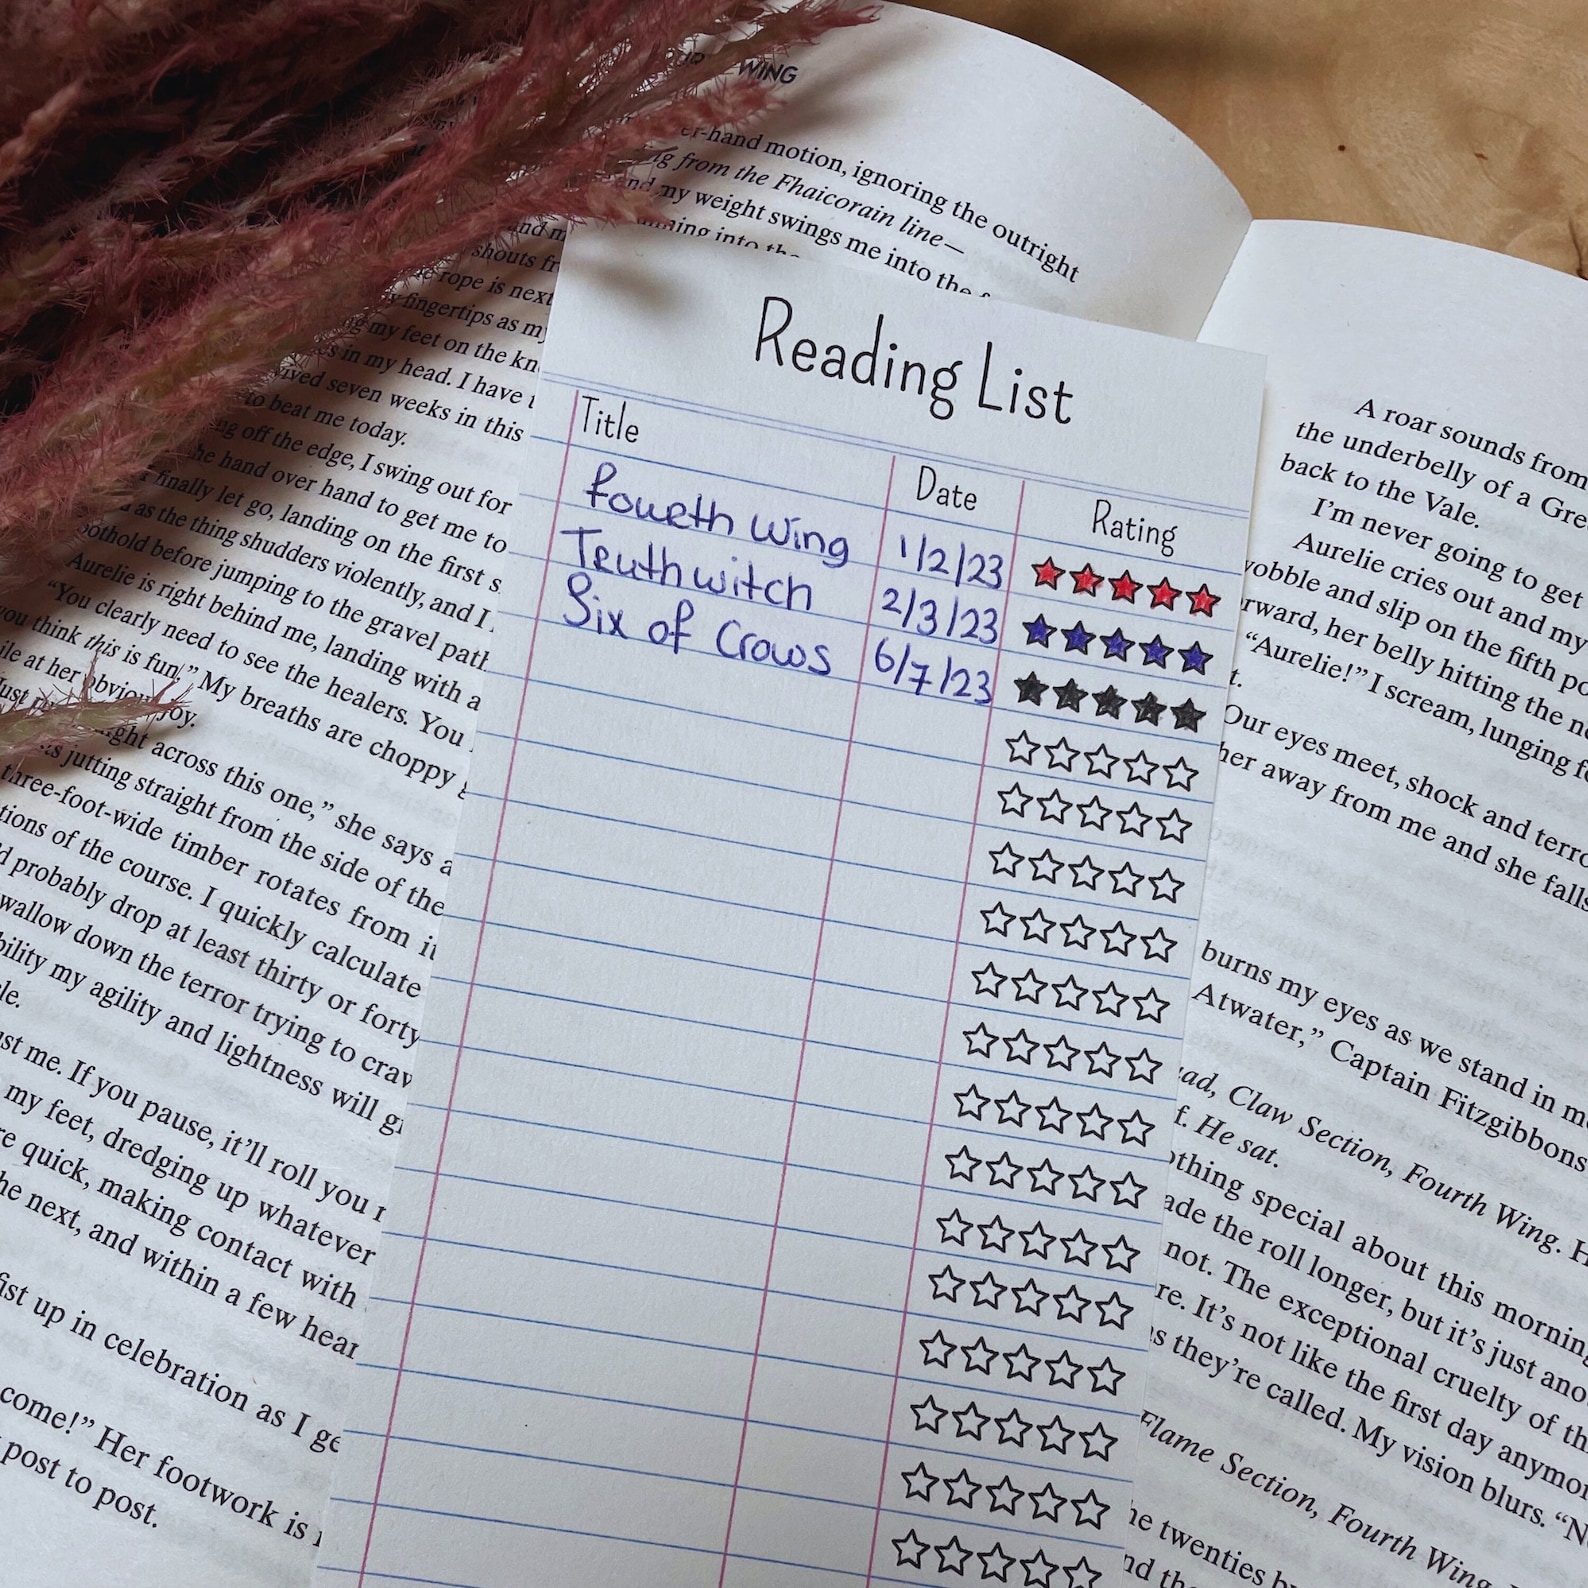 WING
er-hand motion, ignoring the outright
from the Fhaicorain line—
my weight swings me into the
into the
and
shouts
rope is next
fingertips as my
my feet on the
in my head. I have
seven weeks in this
to beat me today.
off the edge, I swing out for
hand over hand to get me to
finally let go, landing on the first
as the thing shudders violently, and I
before jumping to the gravel path
Aurelie is right behind me, landing with a
“You clearly need to see the healers. You
you think this is fun.” My breaths are choppy
at her obvious joy.
across this one,” she says
jutting straight from the side of the
three-foot-wide timber rotates from
of the course. I quickly calculate
probably drop at least thirty or forty
swallow down the terror trying to
my agility and lightness will
me. If you pause, it’ll roll you
my feet, dredging up whatever
quick, making contact with
the next, and within a few
fist up in celebration as I
come!” Her footwork is
post to post.
Reading List
Title Date Rating
Fourth Wing 1/2/23
Truthwitch 2/3/23
Six of Crows 6/7/23
A roar sounds from
the underbelly of a
back to the Vale.
I’m never going to get
Aurelie cries out and my
wobble and slip on the fifth
her belly hitting the
“Aurelie!” I scream, lunging
Our eyes meet, shock and
her away from me and she falls
burns my eyes as we stand in
Atwater,” Captain Fitzgibbons
Claw Section, Fourth Wing.
He sat.
special about this morning
the roll longer, but it’s just
not. The exceptional cruelty of
It’s not like the first day
they’re called. My vision blurs.
Flame Section, Fourth Wing
twenties